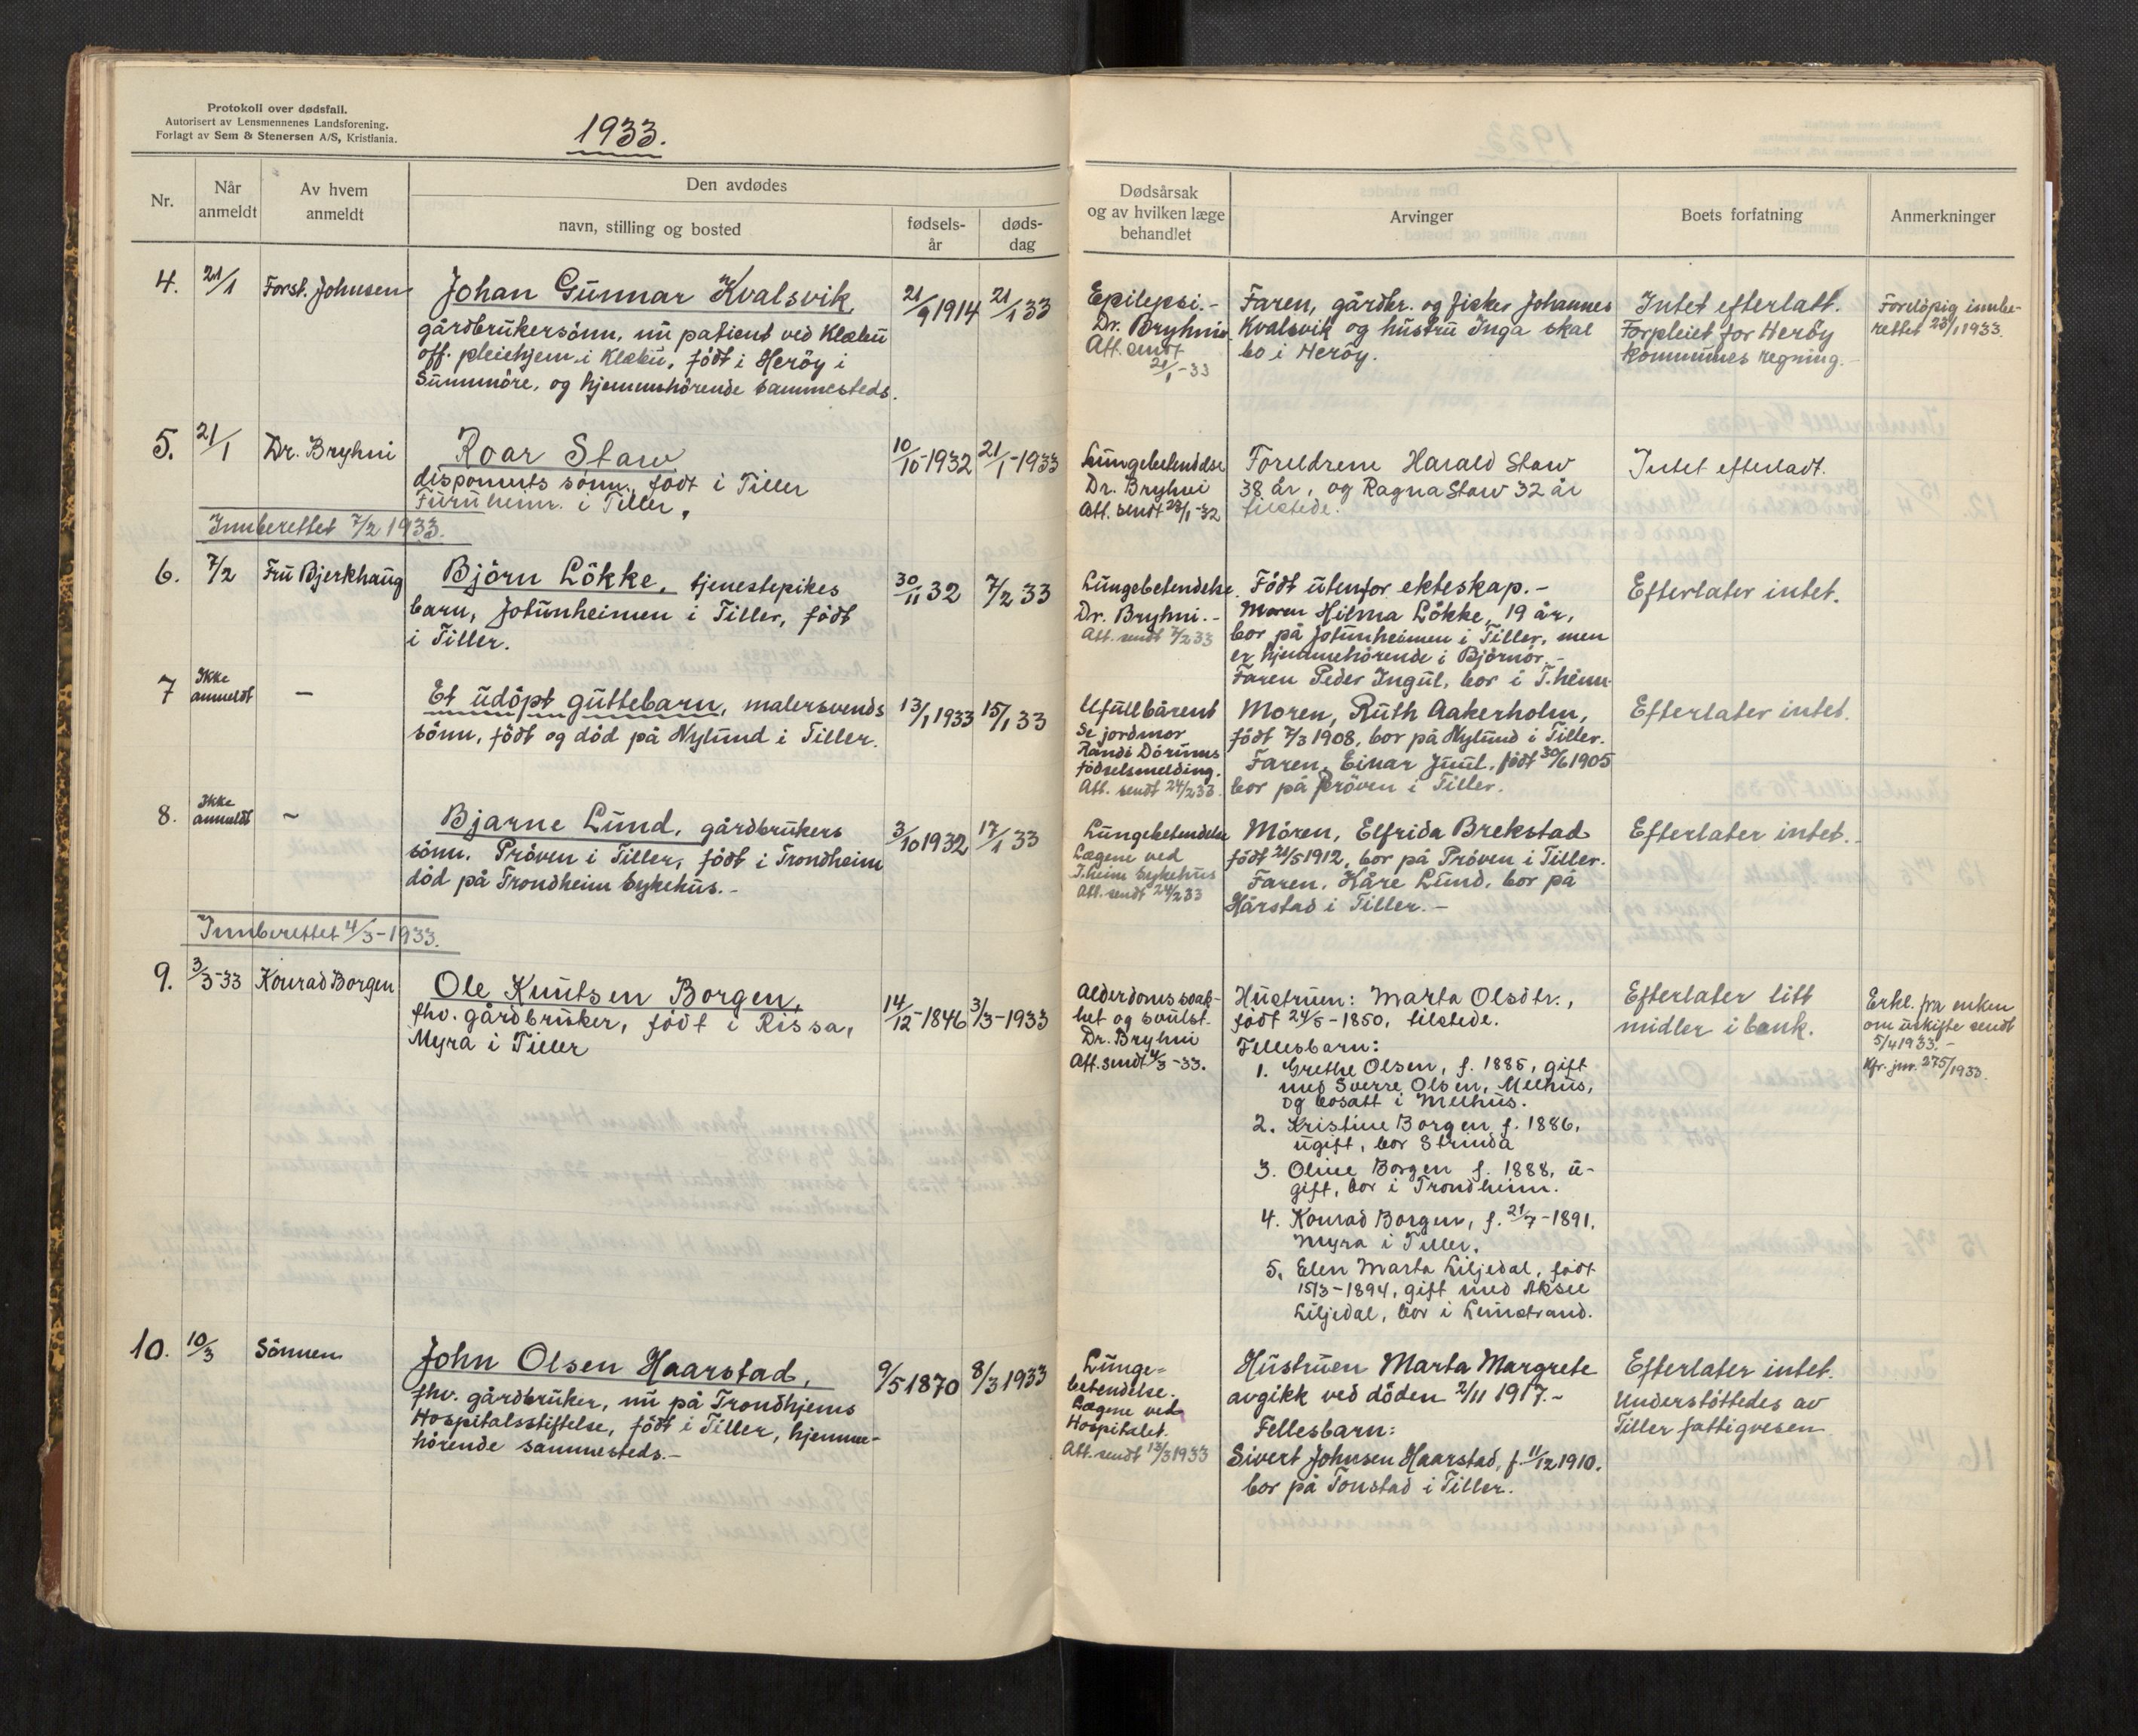 Protokoll over dødsfall.
Autorisert av Lensmennenes Landsforening.
Forlagt av Sem & Stenersen A/S, Kristiania.
1933.
Nr.
Når
anmeldt
Av hvem
anmeldt
Den avdødes
navn, stilling og bosted
fødsels-
år
døds-
dag
Dødsårsak
og av hvilken læge
behandlet
Arvinger
Boets forfatning
Anmerkninger
4.
21/1
Forst. Johnsen
Johan Gunnar Kvalsvik,
gårdbrukersönn, nu patient ved Klæbu
off. pleiehjem i Klæbu, födt i Heröy i
Sunnmöre, og hjemmehörende sammesteds.
21/9 1914
21/1 33
Epilepsi.-
Dr. Bryhni.
Att. sendt
21/1-33
Faren, gårdbr. og fisker Johannes
Kvalsvik og hustru Inga skal
bo i Heröy.
Intet efterlatt.
Forpleiet for Heröy
kommunes regning.-
Forelöpig innbe-
rettet 23/1 1933.
5.
21/1
Dr. Bryhni
Roar Staw
disponents sönn, födt i Tiller
Furuheim i Tiller.
10/10-1932
21/1-1933
Lungebetendelse
Dr. Bryhni
Att. sendt 23/1-32
Foreldrene Harald Staw
38 år, og Ragna Staw 32 år
tilstede.
Intet efterladt.
Innberettet 7/2 1933.
6.
7/2
Fru Bjerkhaug
Björn Lökke, tjenestepikes
barn, Jotunheimen i Tiller, födt
i Tiller.
30/11 32
7/2 33
Lungebetendelse.
Dr. Bryhni.-
Att. sendt 7/2 33
Födt utenfor ekteskap.-
Moren Hilma Lökke, 19 år,
bor på Jotunheimen i Tiller, men
er hjemmehörende i Björnör.-
Faren Peder Ingul, bor i T.heim.
Efterlater intet.
7
Ikke
anmeldt
-
Et udöpt guttebarn, malersvends
sönn, födt og död på Nylund i Tiller.
13/1 1933
15/1 33
Ufullbårent
Se jordmor
Randi Dörums
födselsmelding.
Att. sendt 24/2 33.
Moren, Ruth Aakerholm,
födt 7/3 1908, bor på Nylund i Tiller.
Faren, Einar Juul, födt 30/6 1905
bor på Pröven i Tiller.
Efterlater intet.
8.
Ikke
anmeldt
-
Bjarne Lund, gårdbrukers
sönn. Pröven i Tiller, födt i Trondheim
död på Trondheim sykehus.-
3/10 1932
17/1 33
Lungebetendelse
Lægene ved
T.heim sykehus
Att. sendt 24/2 33
Moren, Elfrida Brekstad
födt 21/5 1912, bor på Pröven i Tiller.
Faren, Kåre Lund, bor på
Hårstad i Tiller.-
Efterlater intet.-
Innberettet 4/3-1933.
9.
3/3-33
Konrad Borgen
Ole Knutsen Borgen,
fhv. gårdbruker, födt i Rissa,
Myra i Tiller
14/12-1846
3/3-1933
Alderdomssvak-
het og svulst.
Dr. Bryhni
Att. sendt 4/3-33.
Hustruen: Marta Olsdtr.,
födt 24/5-1850, tilstede.
Fellesbarn:
1. Grethe Olsen, f. 1885, gift
med Sverre Olsen, Melhus,
og bosatt i Melhus.
2. Kristine Borgen f. 1886,
ugift, bor Strinda
3. Oline Borgen f. 1888, u-
gift, bor i Trondheim.
4. Konrad Borgen, f. 21/7-1891,
Myra i Tiller.
5. Elen Marta Liljedal, födt
15/3-1894, gift med Aksel
Liljedal, bor i Leinstrand.
Efterlater litt
midler i bank.
Erkl. fra enken
om uskifte sendt
5/4 1933.-
Kfr. jnr. 275/1933.
10.
10/3
Sönnen
John Olsen Haarstad,
fhv. gårdbruker, nu på Trondhjems
Hospitalsstiftelse, födt i Tiller, hjemme-
hörende sammesteds.-
9/5 1870
8/3 1933
Lunge-
betendelse.
Lægene ved
Hospitalet.
Att. sendt 13/3 1933
Hustruen Marta Margrete
avgikk ved döden 2/11 1917.-
Fellesbarn:
Sivert Johnsen Haarstad, f. 11/12 1910.
bor på Tonstad i Tiller.
Efterlater intet.
Understöttedes av
Tiller fattigvesen